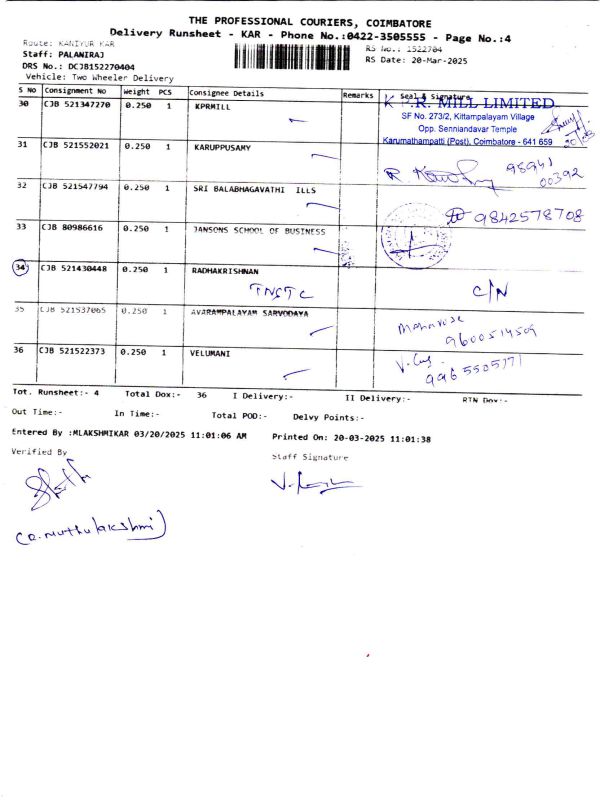 THE PROFESSIONAL COURIERS, COIMBATORE
Delivery Runsheet - KAR - Phone No.:0422-3505555 - Page No.:4
Route: KANIYUR KAR
RS No.: 1522704
Staff: PALANIRAJ
RS Date: 20-Mar-2025
DRS No.: DCJB152270404
Vehicle: Two Wheeler Delivery
S No Consignment No Weight PCS Consignee Details Remarks Seal & Signature
30 CJB 521347270 0.250 1 KPRMILL
K.P.R. MILL LIMITED
SF No. 273/2, Kittampalayam Village
Opp. Senniandavar Temple
Karumathampatti (Post), Coimbatore - 641 659
31 CJB 521552021 0.250 1 KARUPPUSAMY
98941
00392
32 CJB 521547794 0.250 1 SRI BALABHAGAVATHI ILLS
9842578708
33 CJB 80986616 0.250 1 JANSONS SCHOOL OF BUSINESS
34 CJB 521430448 0.250 1 RADHAKRISHNAN
TNSTC C/N
35 CJB 521537065 0.250 1 AVARAMPALAYAM SARVODAYA
9600514509
36 CJB 521522373 0.250 1 VELUMANI
9965505771
Tot. Runsheet:- 4 Total Dox:- 36 I Delivery:- II Delivery:- RTN Dov:-
Out Time:- In Time:- Total POD:- Delvy Points:-
Entered By :MLAKSHMIKAR 03/20/2025 11:01:06 AM Printed On: 20-03-2025 11:01:38
Verified By Staff Signature